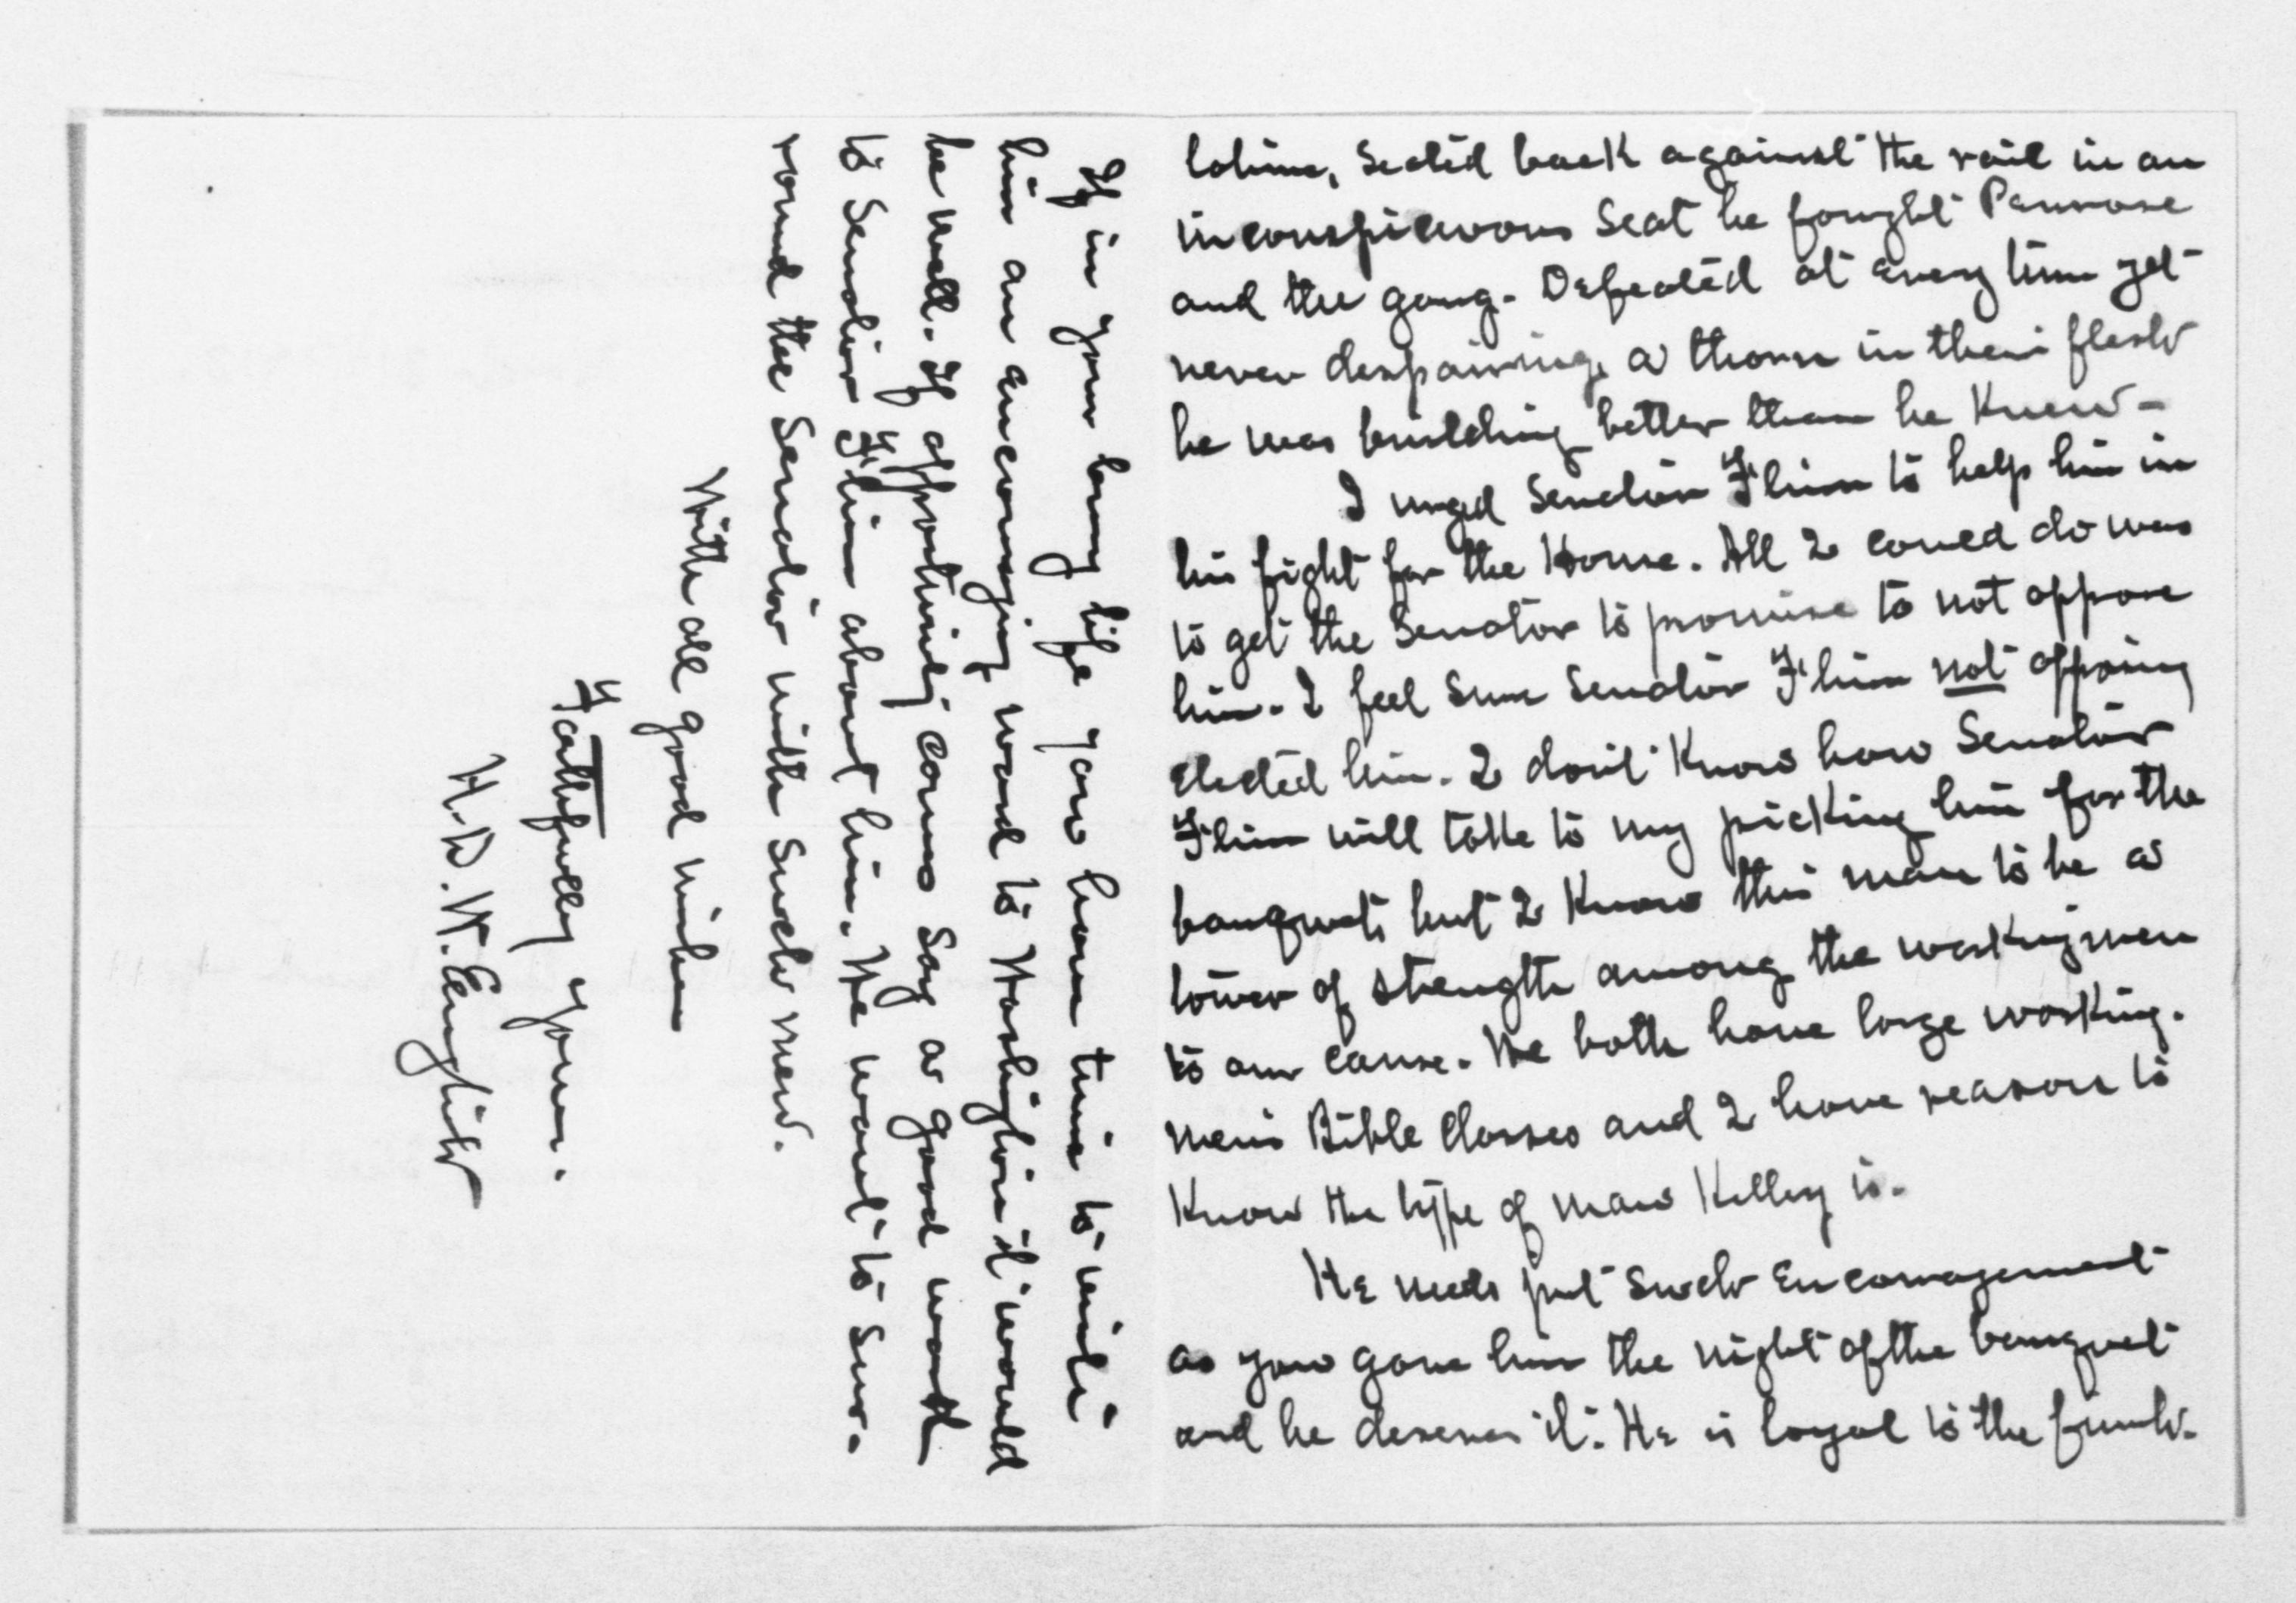 time, seated back against the rail in an
inconspicuous seat he fought Penrose
and the gang. Defeated at every turn yet
never despairing, a thorn in their flesh
he was building better than he knew -
I urged Senator Flinn to help him in
his fight for the House. All I could do was
to get the Senator to promise to not oppose
him. I feel sure Senator Flinn not opposing
elected him. I don't know how Senator
Flinn will take to my picking him for the
banquet but I know this man to be a
tower of strength among the workingmen
to our cause. We both have large working-
men's Bible Classes and I have reason to
know the type of man Kelley is.
He needs just such encouragement
as you gave him the night of the banquet
and he deserves it. He is loyal to the finish.
If in your busy life you have time to write
him an encouraging word to Washington it would
be well. If opportunity comes say a good word
to Senator Flinn about him. We want to sur-
round the Senator with such men.
With all good wishes
Faithfully yours.
H.D.W. English